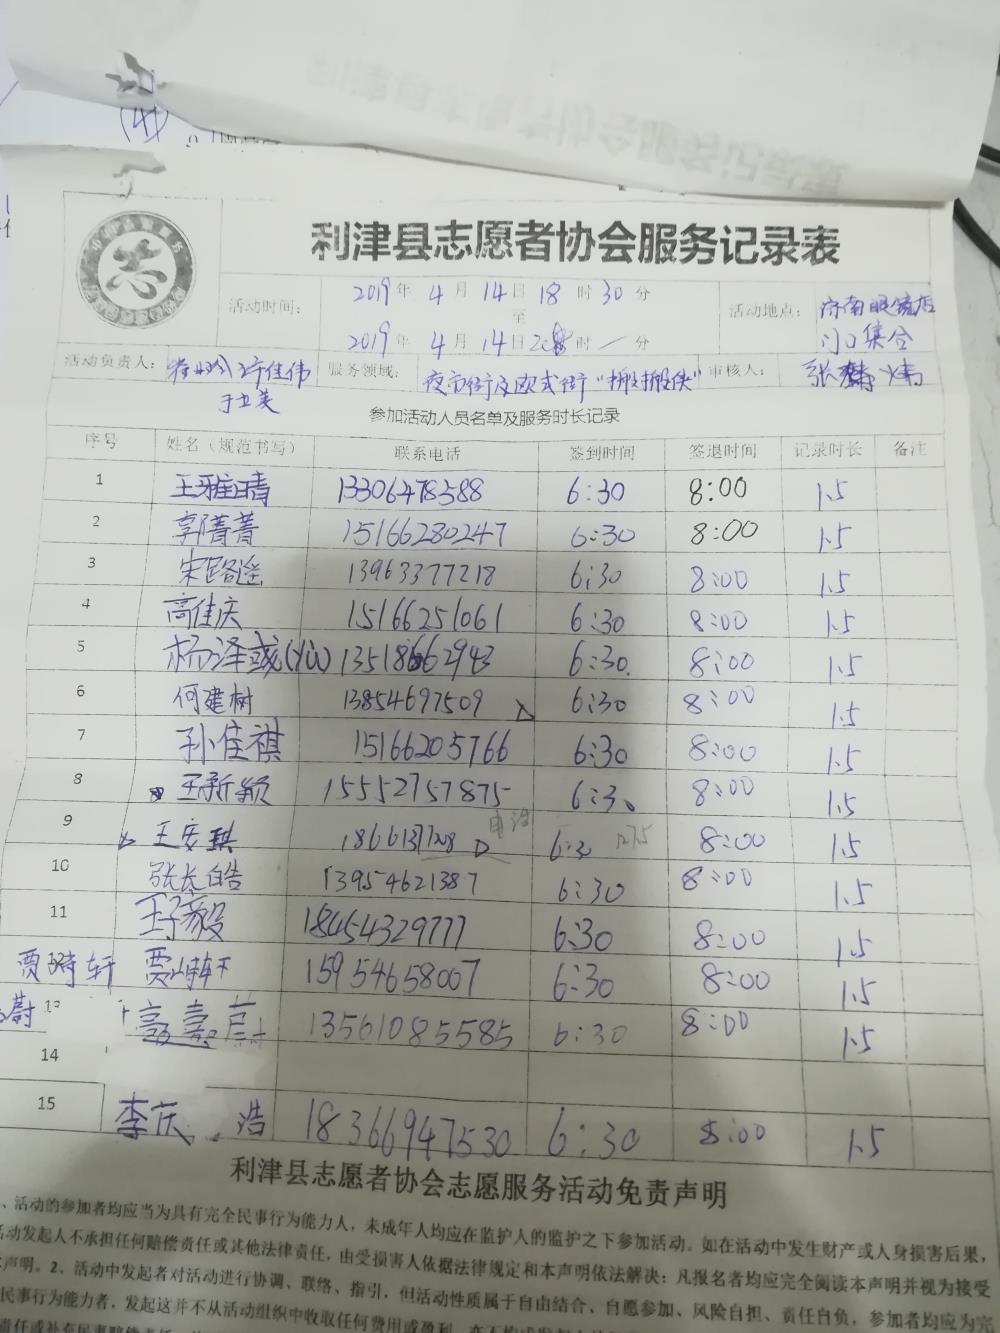 (4)
利津县志愿者协会服务记录表
志
活动时间： 2019年 4月 14日 18时 30分
至
2019年 4月 14日 时 分
活动地点： 济南眼镜店
门口集合
活动负责人： 许佳伟
服务领域： 夜市街及欧式街"捌捌服侠"
审核人： 张
参加活动人员名单及服务时长记录
序号 姓名（规范书写） 联系电话 签到时间 签退时间 记录时长 备注
1 王雅晴 13306478588 6:30 8:00 1.5
2 郭菁菁 15166280247 6:30 8:00 1.5
3 宋路遥 13963377218 6:30 8:00 1.5
4 高佳庆 15166251061 6:30 8:00 1.5
5 杨泽彧(yù) 13518662943 6:30. 8:00 1.5
6 何建树 13854697509 6:30 8:00 1.5
7 孙佳祺 15166205766 6:30 8:00 1.5
8 王新颖 15552757875 6:30 8:00 1.5
9 王安琪 6:30 8:00 1.5
10 张长皓 13954621387 6:30 8:00 1.5
11 王子毅 18454329777 6:30 8:00 1.5
贾 轩 贾 轩 15954658007 6:30 8:00 1.5
蔚 13 高嘉蔚 13561085585 6:30 8:00 1.5
14
15 李庆 浩 18366947530 6:30 8:00 1.5
利津县志愿者协会志愿服务活动免责声明
、活动的参加者均应当为具有完全民事行为能力人，未成年人均应在监护人的监护之下参加活动。如在活动中发生财产或人身损害后果，
活动发起人不承担任何赔偿责任或其他法律责任，由受损害人依据法律规定和本声明依法解决；凡报名者均应完全阅读本声明并视为接受
声明。2、活动中发起者对活动进行协调、联络、指引，但活动性质属于自由结合、自愿参加、风险自担、责任自负，参加者均应为完
民事行为能力者，发起这并不从活动组织中收取任何费用或盈利，